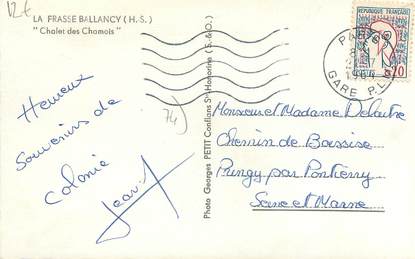 12€
LA FRASSE BALLANCY (H.-S.)
"Chalet des Chamois"
74)
Heureux
souvenirs de
colonie
Jean
Photo Georges PETIT Conflans Ste-Honorine (S.-&-O.)
REPUBLIQUE FRANÇAISE
0,20
PARIS
GARE P.L.M
Monsieur et Madame Delaitre
Chemin de Boissise
Pringy par Pontierry
Seine et Marne